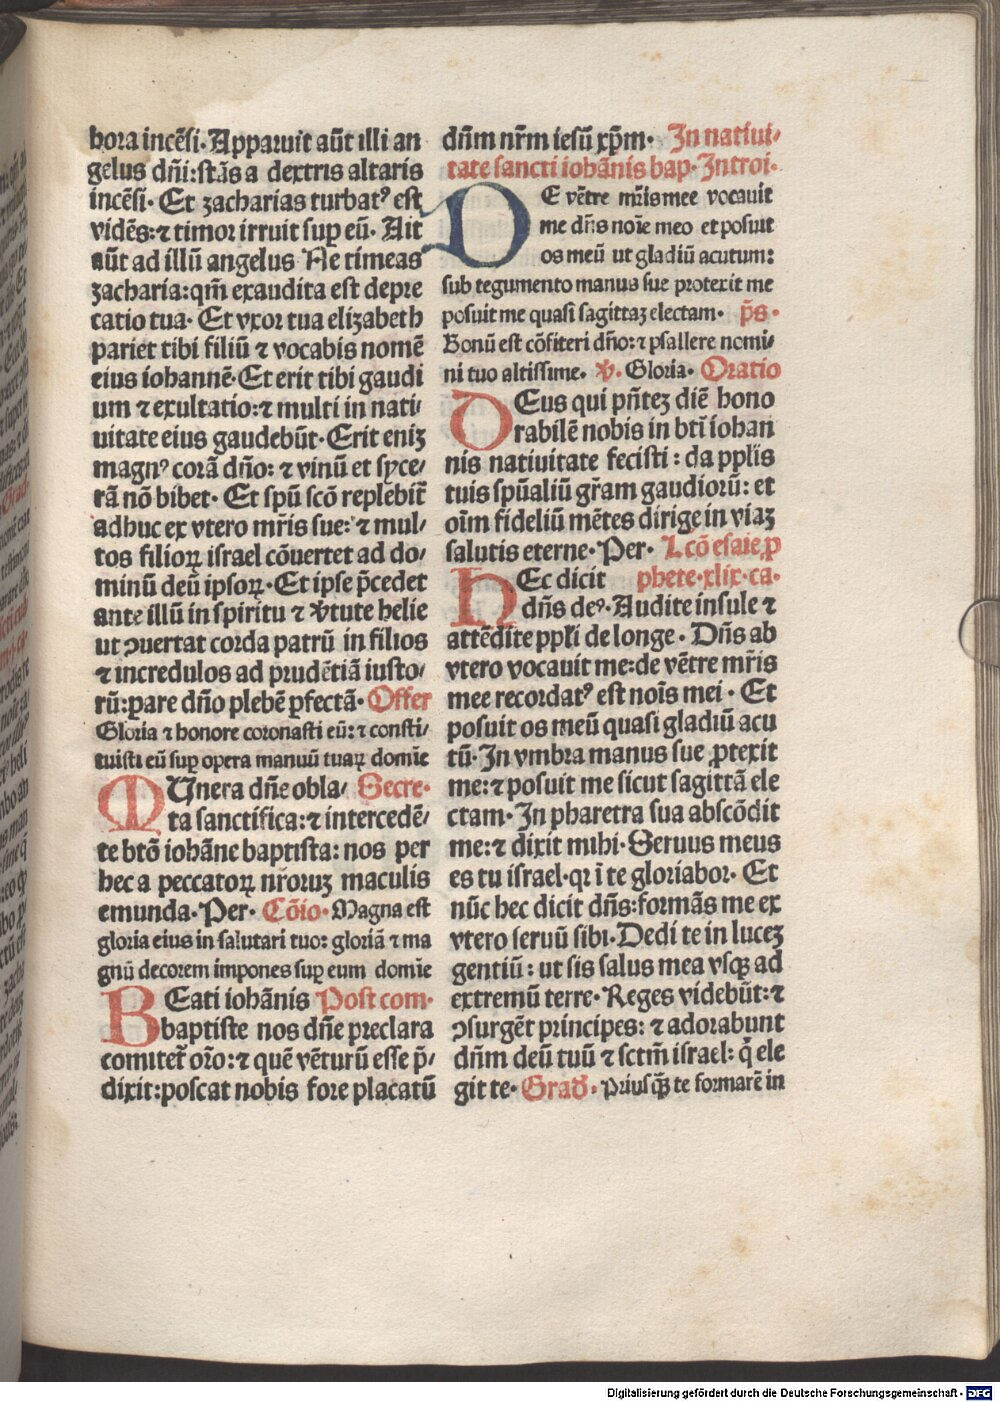 hora incēsi. Apparuit aūt illi an
gelus dn̄i: stās a dextris altaris
incēsi. Et zacharias turbatꝰ est
vidēs: ⁊ timor irruit suꝑ eū. Ait
aūt ad illū angelus Ne timeas
zacharia: qm̄ exaudita est depre
catio tua. Et vxor tua elizabeth
pariet tibi filiū ⁊ vocabis nomē
eius iohannē. Et erit tibi gaudi
um ⁊ exultatio: ⁊ multi in nati/
uitate eius gaudebūt. Erit eniꝫ
magnꝰ corā dn̄o: ⁊ vinū et syce/
rā nō bibet. Et spū scō replebit᷑
adhuc ex vtero mr̄is sue: ⁊ mul/
tos filioꝝ israel cōuertet ad do/
minū deū ipsoꝝ. Et ipse p̄cedet
ante illū in spiritu ⁊ v̄tute helie
ut ꝯuertat corda patrū in filios
⁊ incredulos ad prudētiā iusto/
rū: ꝑare dn̄o plebē ꝑfectā. Offer
Gloria ⁊ honore coronasti eū: ⁊ consti/
tuisti eū suꝑ opera manuū tuaꝝ domīe
MUnera dn̄e obla/ Secre.
ta sanctifica: ⁊ intercedē/
te btō iohāne baptista: nos per
hec a peccatoꝝ nr̄oruꝫ maculis
emunda. Per. Cōio. Magna est
gloria eius in salutari tuo: gloriā ⁊ ma
gnū decorem impones suꝑ eum domīe
BEati iohānis Post com.
baptiste nos dn̄e preclara
comitet᷑ oro: ⁊ quē vēturū esse p̄/
dixit: poscat nobis fore placatū
dn̄m nr̄m iesū xp̄m. In natiui/
tate sancti iohānis bap. Introi.
DE vētre mr̄is mee vocauit
me dn̄s noīe meo et posuit
os meū ut gladiū acutum:
sub tegumento manus sue protexit me
posuit me quasi sagittaꝫ electam. p̄s.
Bonū est cōfiteri dn̄o: ⁊ psallere nomi/
ni tuo altissime. v̄. Gloria. Oratio
DEus qui pn̄teꝫ diē hono
rabilē nobis in btī iohan
nis natiuitate fecisti: da pplīs
tuis spūaliū gr̄am gaudiorū: et
oīm fideliū mētes dirige in viaꝫ
salutis eterne. Per. Lcō esaie ꝓ
HEc dicit phete. xlix. ca.
dn̄s deꝰ. Audite insule ⁊
attēdite pplī de longe. Dn̄s ab
vtero vocauit me: de vētre mr̄is
mee recordatꝰ est noīs mei. Et
posuit os meū quasi gladiū acu
tū. In vmbra manus sue ꝓtexit
me: ⁊ posuit me sicut sagittā ele
ctam. In pharetra sua abscōdit
me: ⁊ dixit mihi. Seruus meus
es tu israel. qr ī te gloriabor. Et
nūc hec dicit dn̄s: formās me ex
vtero seruū sibi. Dedi te in luceꝫ
gentiū: ut sis salus mea vsqꝫ ad
extremū terre. Reges videbūt: ⁊
ꝯsurgēt principes: ⁊ adorabunt
dn̄m deū tuū ⁊ sctm̄ israel: q̄ ele
git te. Grad. Priusq̄ꝫ te formarē in
Digitalisierung gefördert durch die Deutsche Forschungsgemeinschaft - DFG